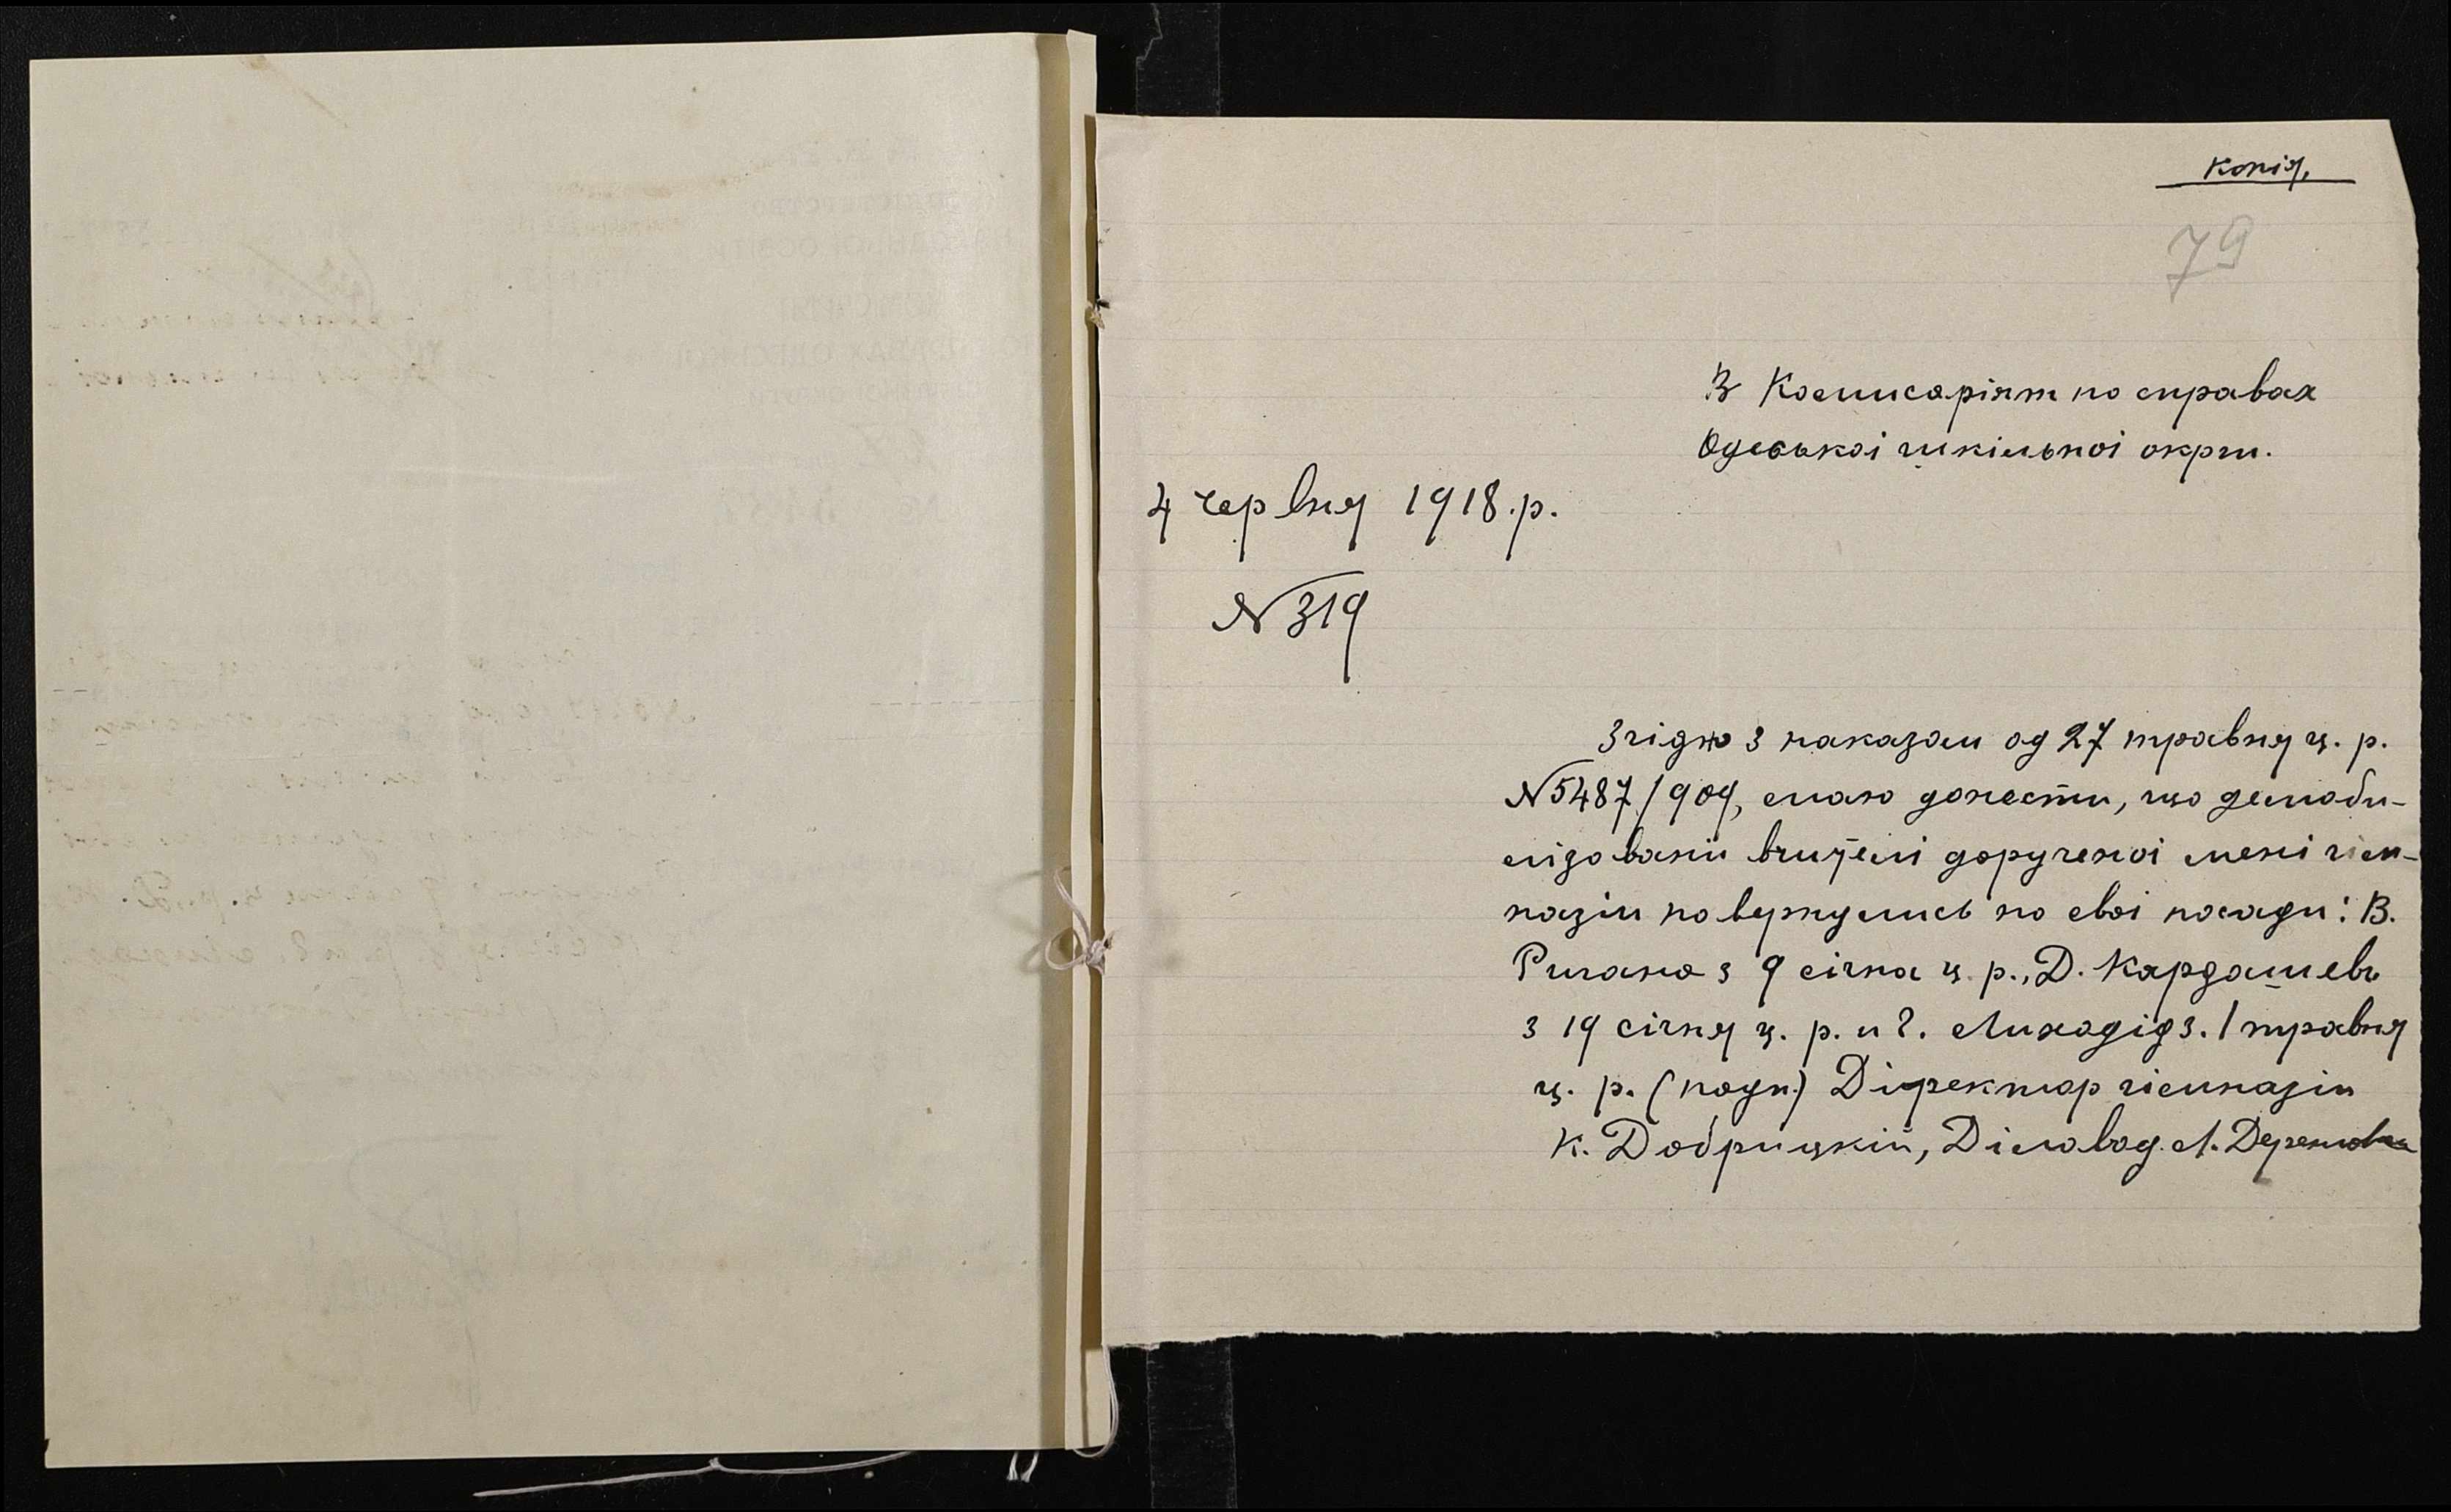 Копія.
79
В Комисаріят по справах
Одеськоі шкільноі окрги.
4 червня 1918.р.
№ 319
Згідно з наказам од 27 травня ц. р.
№5487/909, маю донести, що демоби-
лізованіи вчителі дорученоі мені гім-
назіи повернулись на своі посади: В.
Ригано з 9 січна ц. р., Д. Кардашевъ
з 19 січня ц. р. и Г. Лиходід з. 1 травня
ц. р. (подп.) Діректор гімназіи
К. Добрицкій, Діловод. Л.